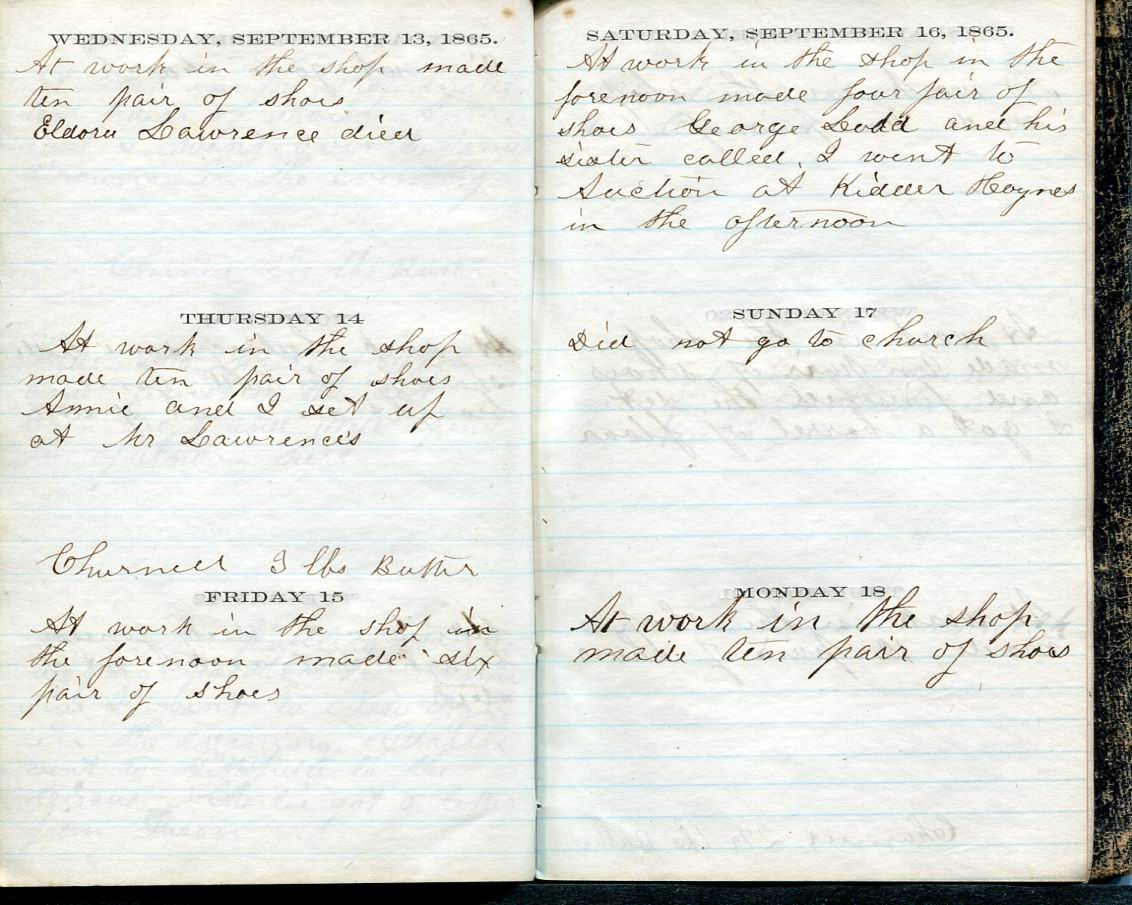 WEDNESDAY, SEPTEMBER 13, 1865.
At work in the shop made
ten pair of shoes
Eldora Lawrence died
THURSDAY 14
At work in the shop
made ten pair of shoes
Annie and I set up
at Mr Lawrences
Churned 3 lbs Butter
FRIDAY 15
At work in the shop in
the forenoon made six
pair of shoes
SATURDAY, SEPTEMBER 16, 1865.
At work in the shop in the
forenoon made four pair of
shoes George Dodd and his
sister called. I went to
Auction at Kidder Haynes
in the afternoon
SUNDAY 17
Did not go to church
MONDAY 18
At work in the shop
made ten pair of shoes